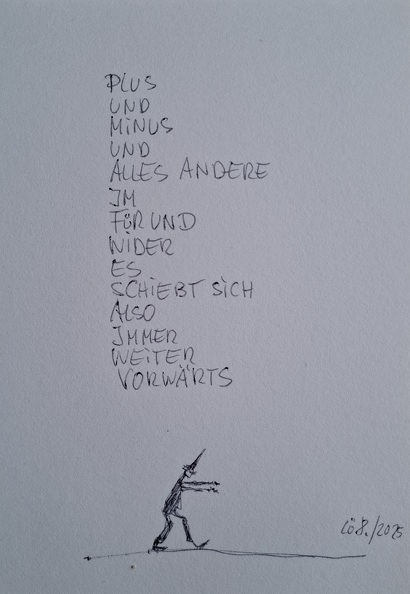 PLUS
UND
MINUS
UND
ALLES ANDERE
IM
FÜR UND
WIDER
ES
SCHIEBT SICH
ALSO
IMMER
WEITER
VORWÄRTS
/2025